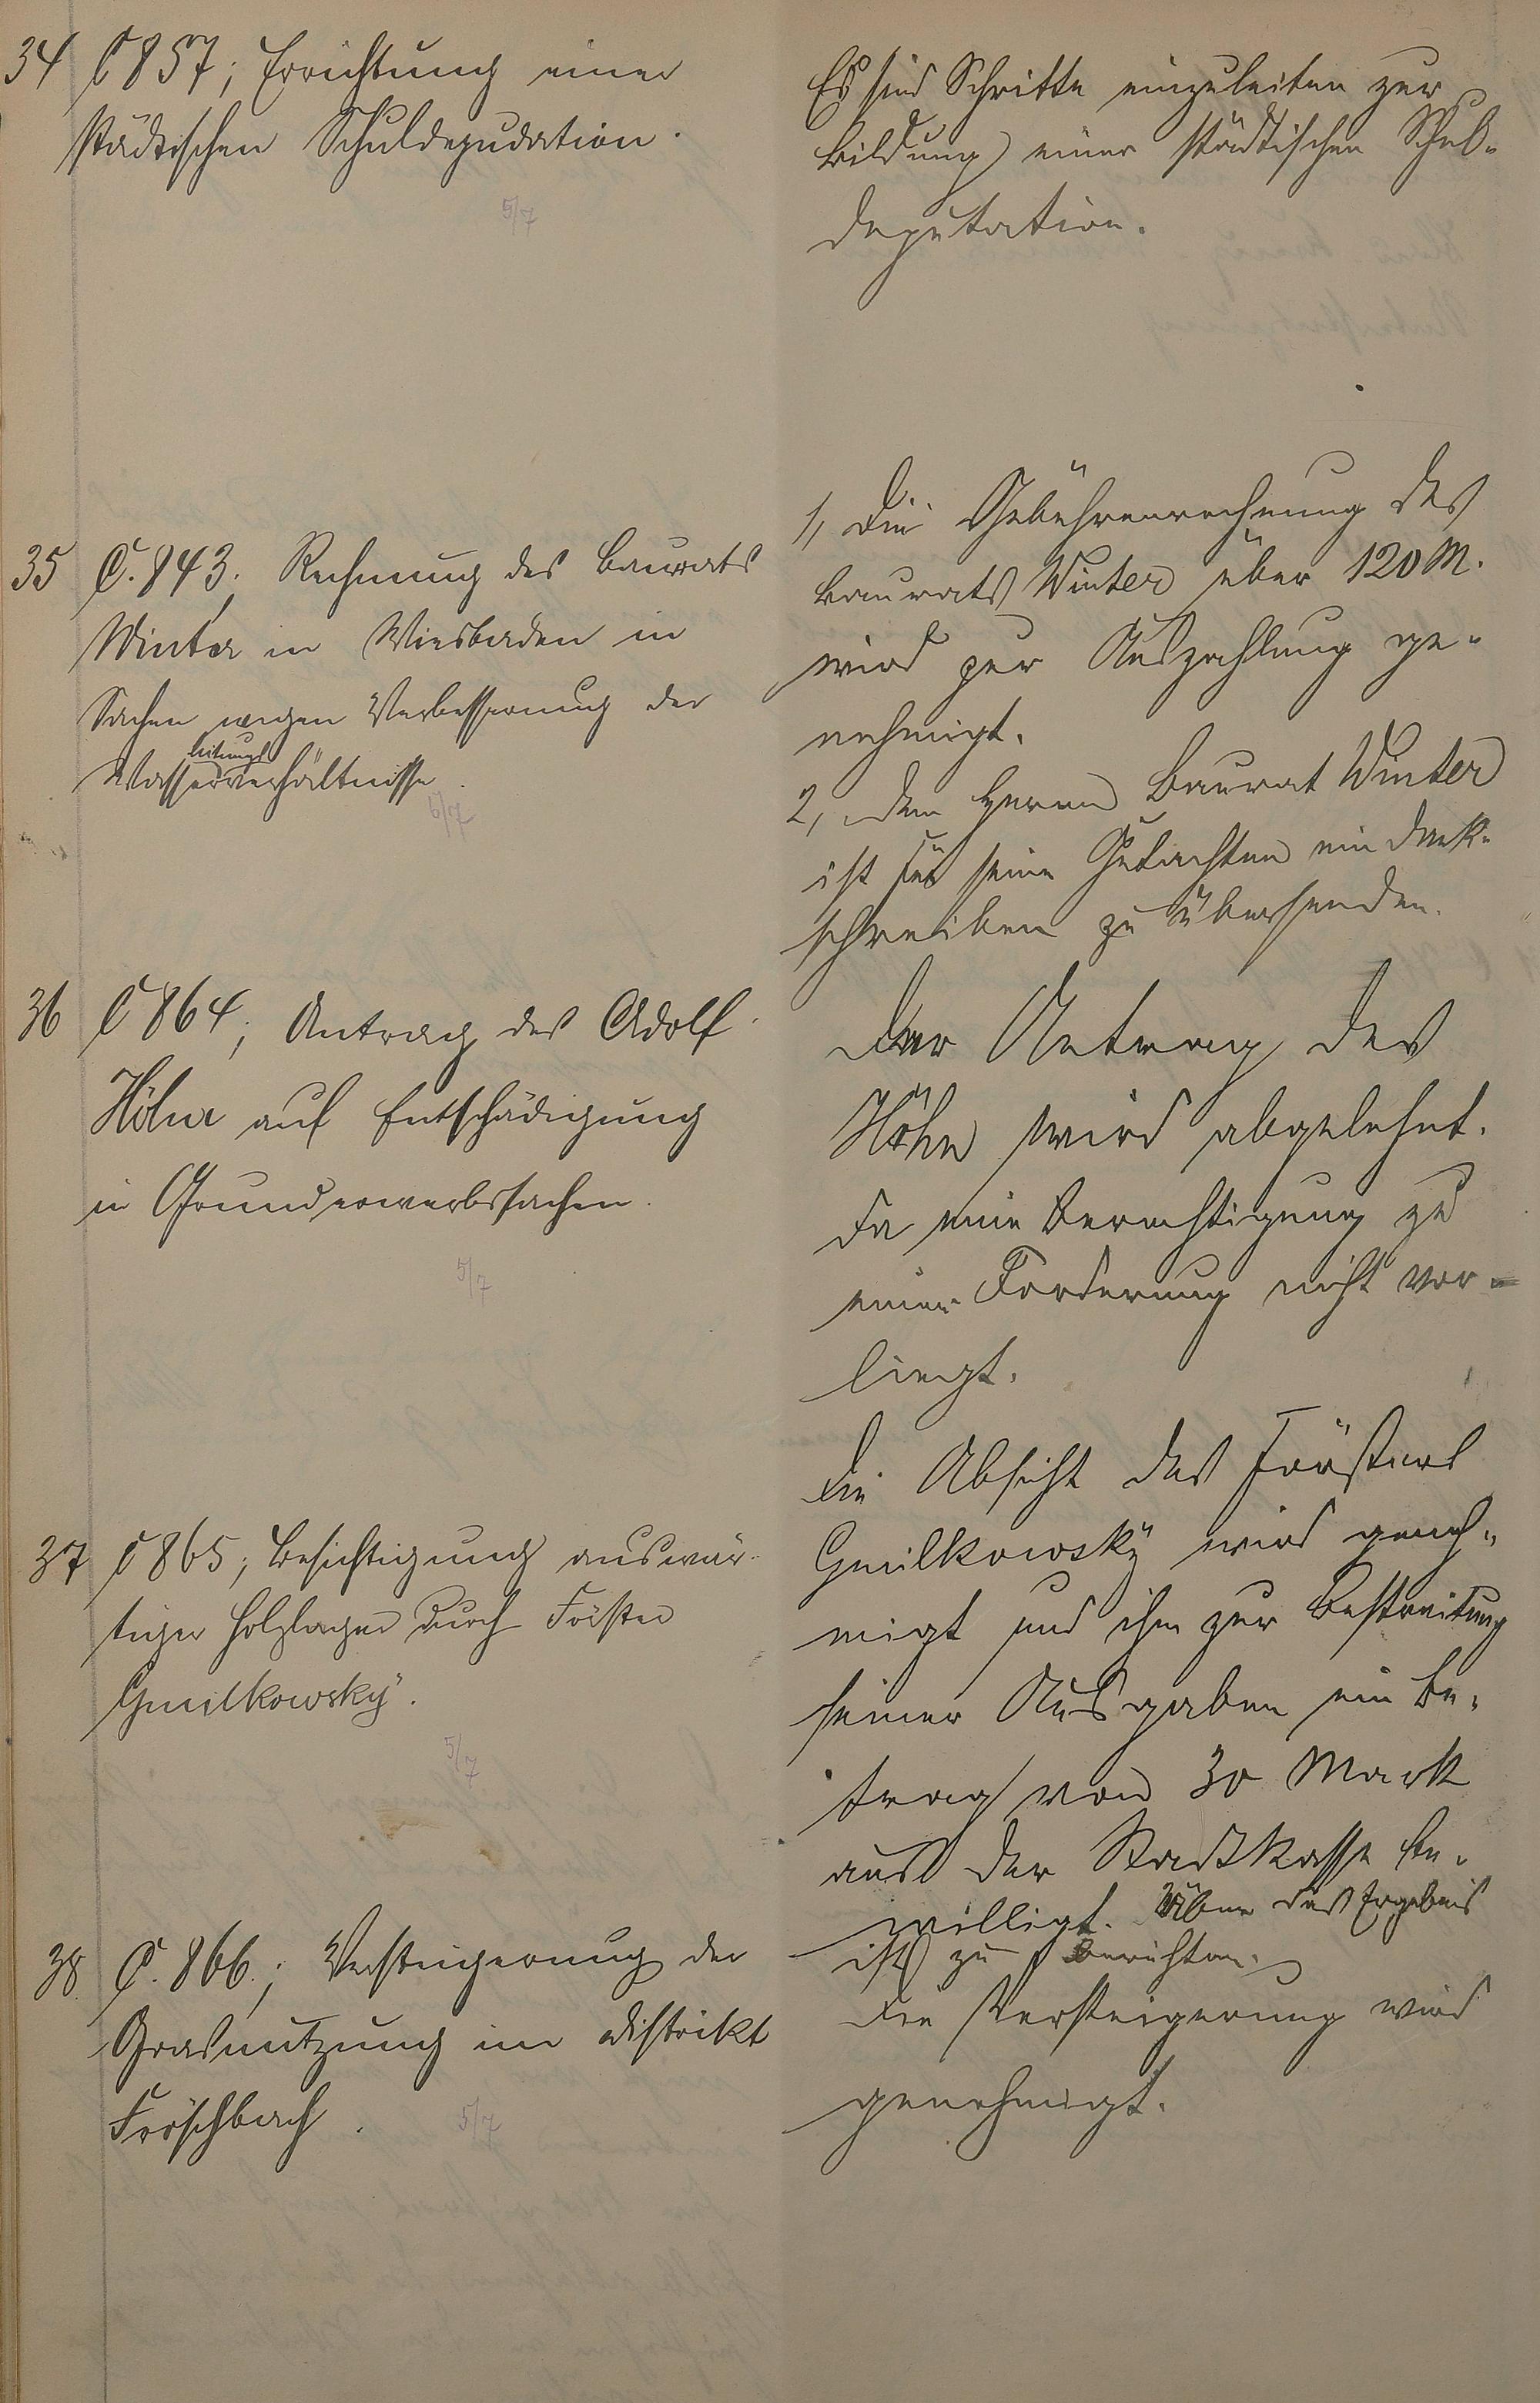 34 C 857; Errichtung einer
städtischen Schuldepudation.
5/7
Es sind Schritte einzuleiten zur
Bildung einer städtischen Schul-
deputation.
35 C. 843. Rechnung des Baurats
Winter in Wiesbaden in
Sachen wegen Verbesserung der
leitungs
Wasserverhältnisse.
5/7
1, Die Gebührenrechnung des
Baurats Winter über 120 M.
wird zur Auszahlung ge-
nehmigt.
2, Dem Herrn Baurat Winter
ist für seine Gutachten ein Dank-
schreiben zu übersenden.
36 C 864; Antrag des Adolf
Höhn auf Entschädigung
in Grunderwerbssachen.
5/7
Der Antrag des
Höhn wird abgelehnt.
da eine Berechtigung zu
einer Forderung nicht vor-
liegt.
37 C 865; Besichtigung auswär-
tiger Holzlager durch Förster
Gmilkowsky.
5/7
Die Absicht des Försters
Gmilkowsky wird geneh-
migt und ihm zur Bestreitung
seiner Ausgaben ein Be-
trag von 30 Mark
aus der Stadtkasse be-
willigt. Über das Ergebnis
ist zu berichten.
38 C. 866.; Versteigerung der
Grasnutzung im Distrikt
Fröschbach.
5/7
Die Versteigerung wird
genehmigt.